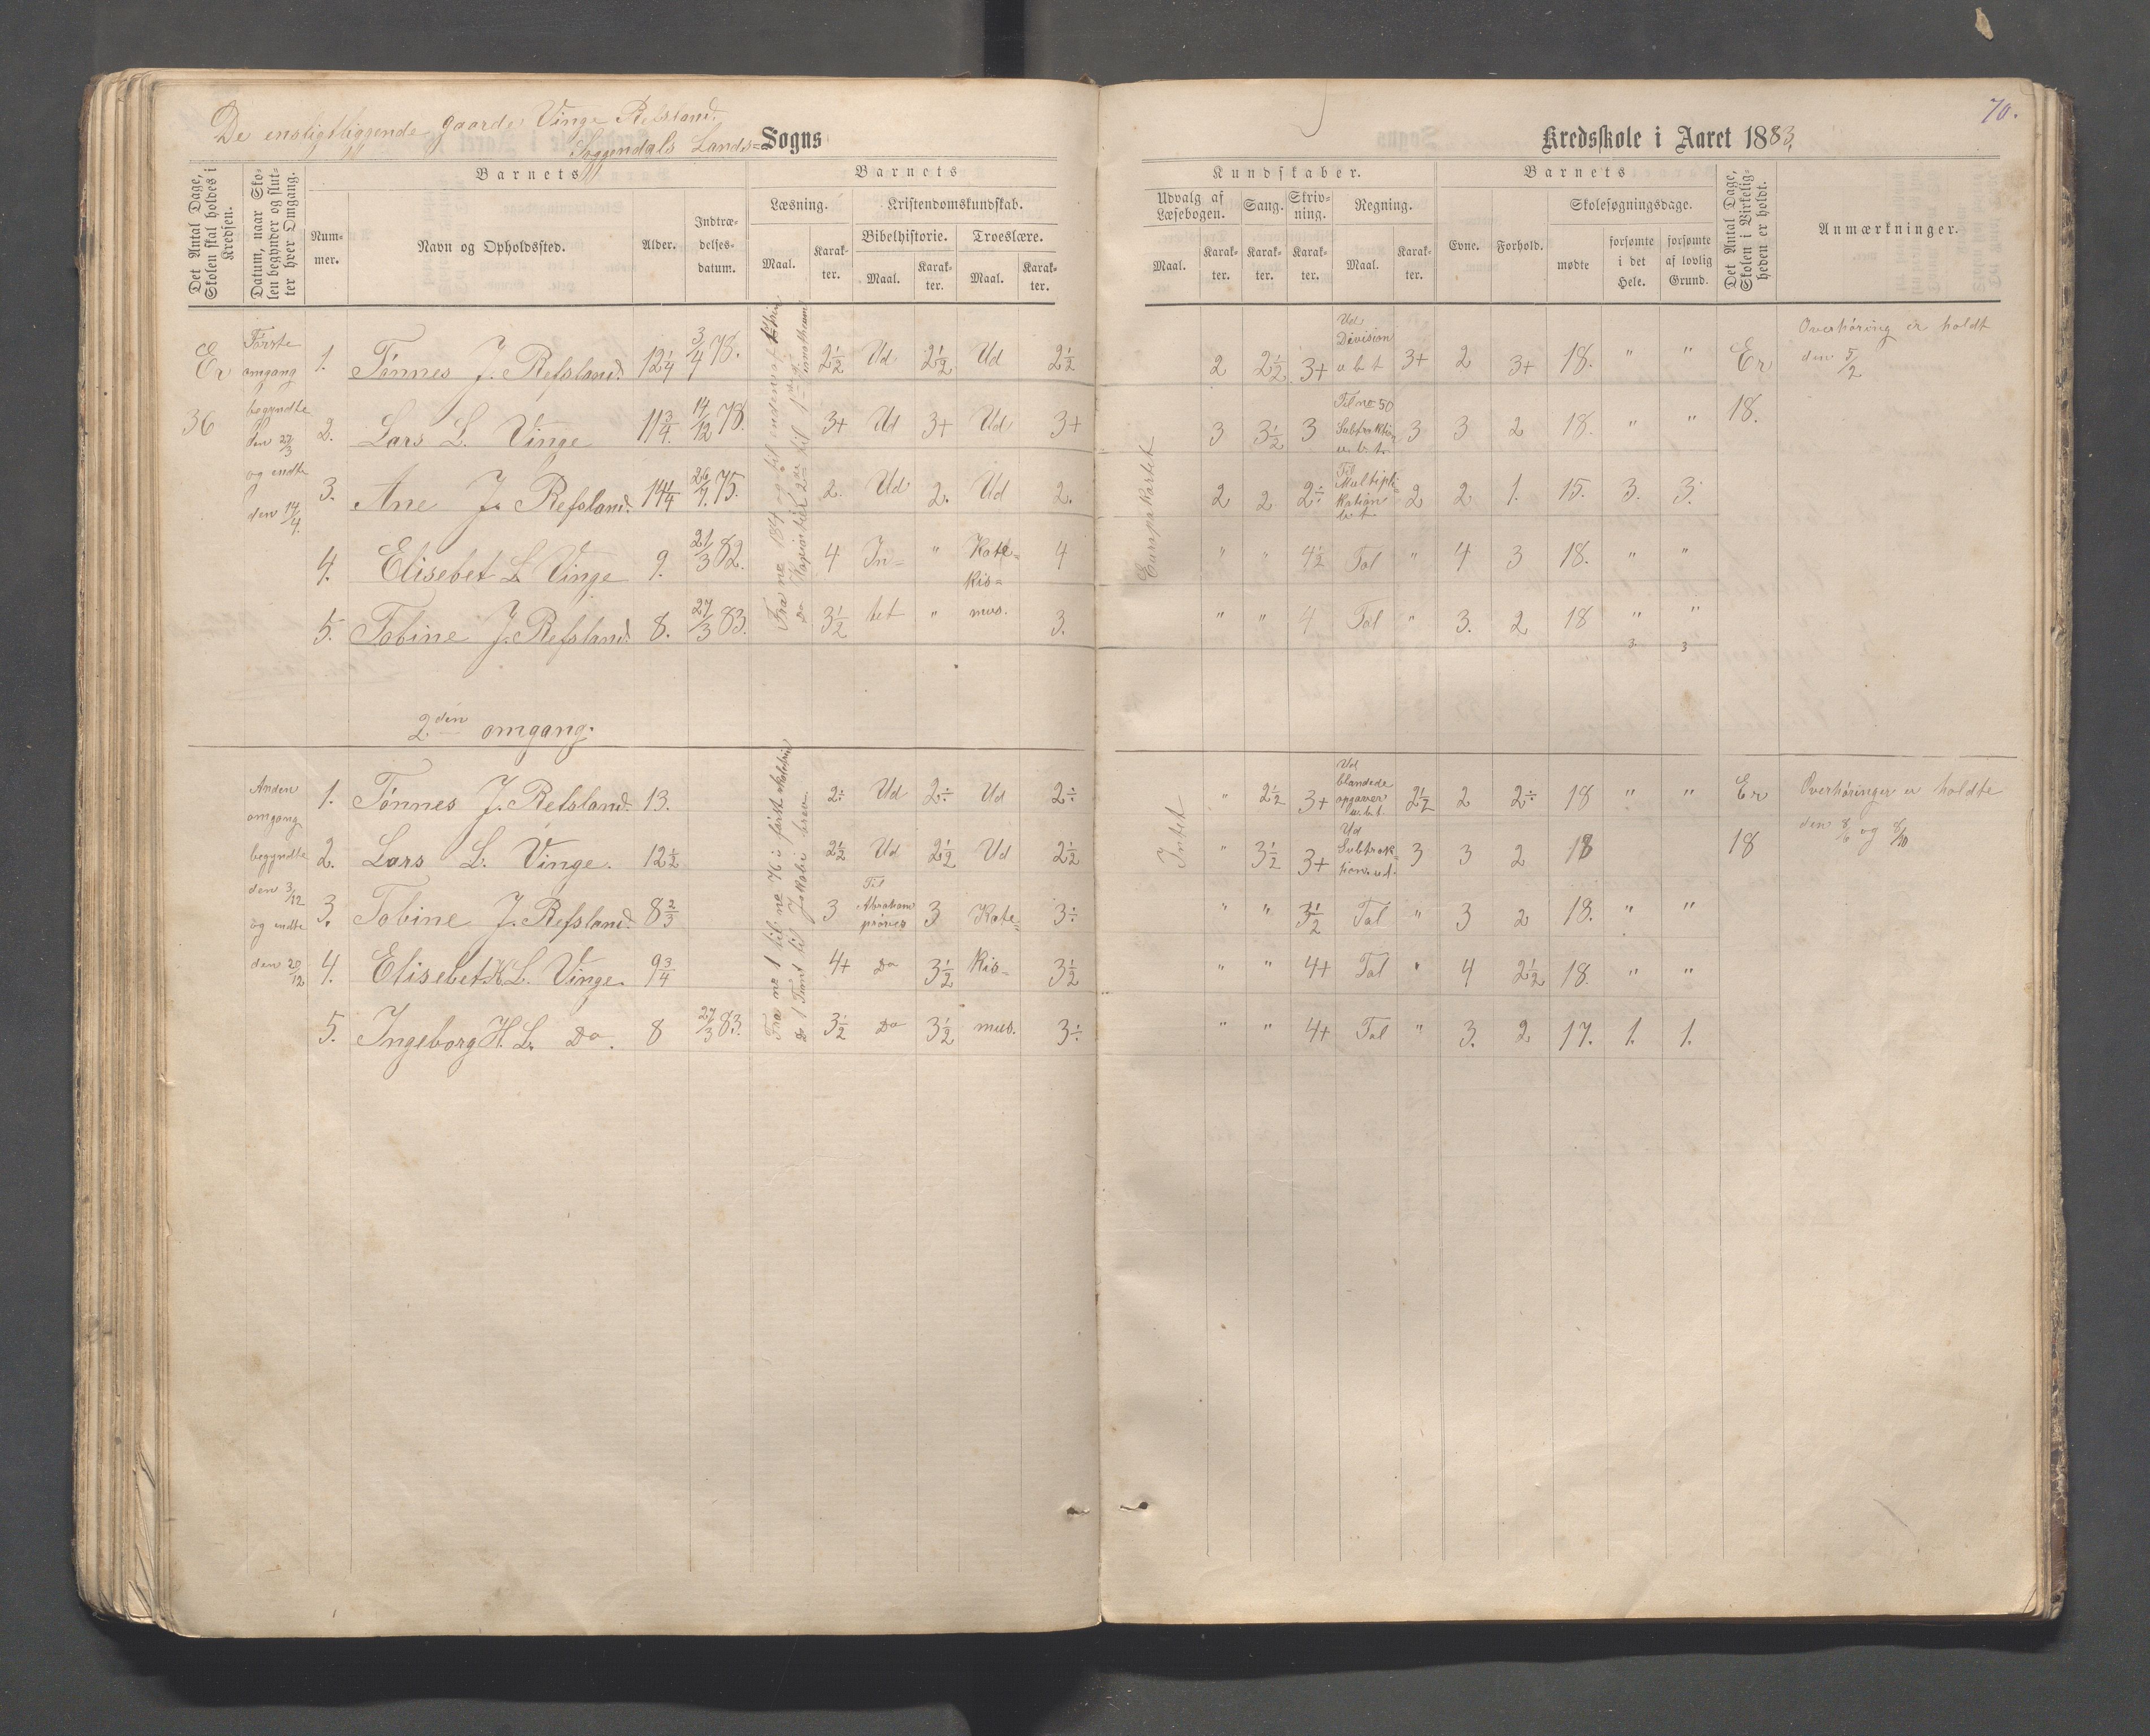 De ensligtliggende gaarde Vinge Refsland.
Soggendals Lands= Sogns
Barnets
Barnets
Det Antal Dage, Skolen skal holdes i Kredsen.
Datum, naar Skolen begynder og slutter hver Omgang.
Nummer.
Navn og Opholdssted.
Alder.
Indtrædelsesdatum.
Læsning.
Maal.
Karakter.
Kristendomskundskab.
Bibelhistorie.
Troeslære.
Maal.
Karakter.
Maal.
Karakter.
Er 36
Første omgang begyndte den 27/3 og endte den 14/4.
1. Tønnes J. Refsland. 12 1/4 3/4 78. 2 1/2 Ud 2 1/2 Ud 2 1/2
2. Lars L. Vinge 11 3/4. 14/12 78. 3+ Ud 3+ Ud 3+
3. Ane J. Refsland. 14 1/4 26/7. 75. 2. Ud 2. Ud 2.
4. Elisebet L. Vinge 9. 21/3 82. 4 In= " Kate= 4
kis=
5. Tobine J. Refsland. 8. 27/3 83. 3 1/2 tet " mus. 3.
2den omgang.
Anden omgang begyndte den 3/12 og endte den 20/12
Fra no 1 til no 76 i først
Do 1 Timt til Jakobi brev.
1. Tønnes J. Refsland. 13. 2÷ Ud 2÷ Ud 2÷
2. Lars L. Vinge. 12 1/2 2 1/2 Ud 2 1/2 Ud 2 1/2
3. Tobine J. Refsland. 8 2/3 3 Til Abraham prøves 3 Kate= 3÷
4. Elisebet K L. Vinge. 9 3/4 4+ Do 3 1/2 kis= 3 1/2
5. Ingeborg H. L. Do. 8 27/3 83. 3 1/2 Do 3 1/2 mus. 3÷
70.
Kredsskole i Aaret 1883.
Kundskaber.
Barnets
Udvalg af Læsebogen.
Maal.
Karakter.
Sang.
Karakter.
Skrivning.
Karakter.
Regning.
Maal.
Karakter.
Evne.
Forhold.
Skolesøgningsdage.
mødte
forsømte i det Hele.
forsømte af lovlig Grund.
Det Antal Dage, Skolen i Virkeligheden er holdt.
Anmærkninger.
Europakartet
2 2 1/2 3+ Ud Division u b t 3+ 2 3+ 18. " " Er Overhøring er holdt
den 5/2
3 3 1/2 3 Til no 50 Subtraktion u. b. t. 3 3 2 18. " " 18.
2 2 2÷ Til Multiplikation b. t. 2 2 1. 15. 3. 3.
" " 4 1/2 Tal " 4 3 18. " "
" " 4 Tal " 3. 2 18 " "
3. 3
Intet
" 2 1/2 3+ Ud blandede opgaver u. b. t. 2 1/2 2 2÷ 18 " " Er Overhøringer er holdte
den 8/6 og 8/10
" 3 1/2 3+ Ud Subtraktion 3 3 2 18 18
" " 3 1/2 Tal " 3 2 18. " "
" " 4+ Tal " 4 2 1/2 18. " "
" " 4+ Tal " 3. 2 17. 1. 1.